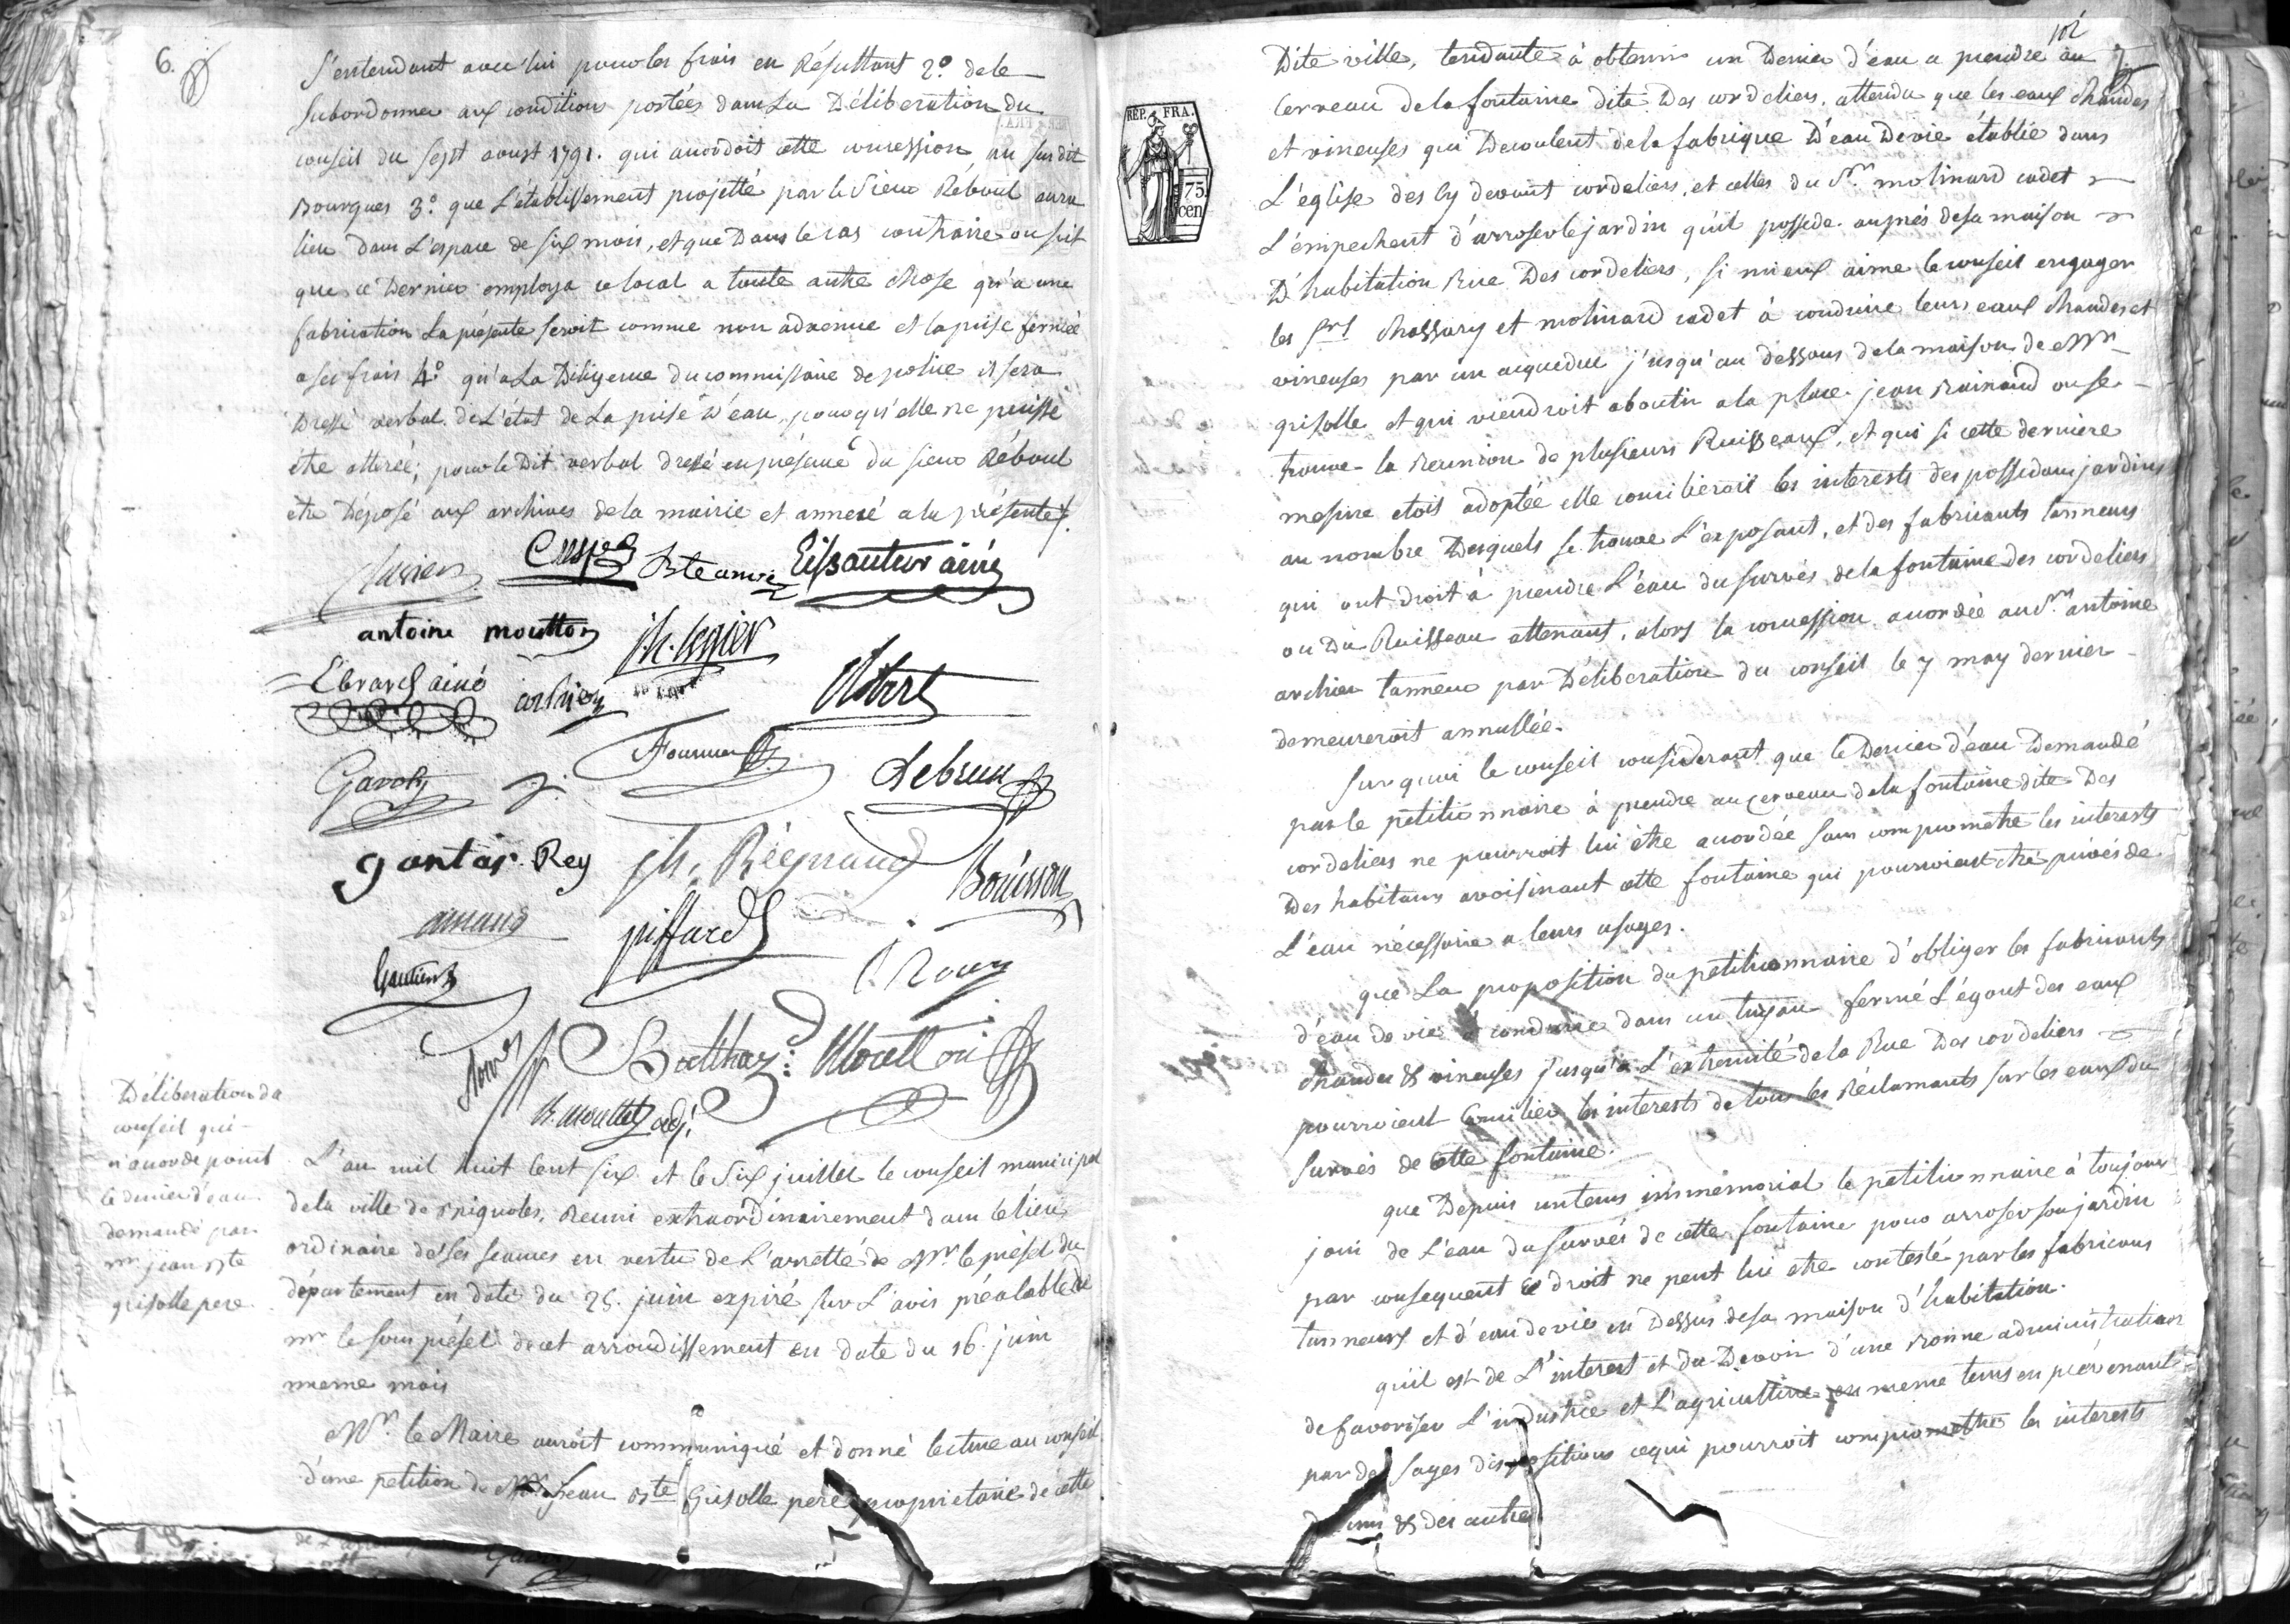 6.
S'entendant avec lui pour les frais en Résultant 2.° de le
subordonner aux conditions portées dans la Déliberation du
conseil du sept aoust 1791. qui accordoit cette concession au susdit
Bourgues 3.° que l'établissement projetté par le sieur Reboul aura
lieu dans l'espace de six mois, et que Dans le cas contraire ou soit
que ce Dernier employa ce local a toute autre chose qu'a une
fabrication La présente seroit comme non advenue et la prise fermée
a ses frais 4.° qu'a La Diligence du commissaire de police il sera
Dressé verbal de L'état de La prise d'eau, pour qu'elle ne puisse
être altérée; pour le Dit verbal dressé en présence du sieur Réboul
être Déposé aux archives de la mairie et annexé a la présente
antoine moutton
jh. legier
Ebrard ainé
archier
Garcin
Fournier
Lebrun
gantar. Rey
jh. Régnaud
Bouisson
arnaud
piffard
Gautier
C. Roux
Balthaz: Moutton
adj.
Déliberation du
conseil qui
n'accorde point
le denier d'eau
demandé par
mr jean bte
grisolle pere
L'an mil huit cent six et le six juillet le conseil municipal
de la ville de Brignoles, Reuni extraordinairement dans le lieu
ordinaire de ses seances en vertu de L'arretté de Mr. le préfet du
département en date du 25. juin expiré sur L'avis préalable de
mr le sous préfet de cet arrondissement en date du 16. juin
meme mois
Mr. le Maire auroit communiqué et donné lecture au conseil
d'une petition de Mr. Jean Bte Grisolle pere proprietaire de cette
102
7
REP. FRA.
75
cen
Dite ville, tendante à obtenir un Denier d'eau a prendre au
Cerveau de la fontaine dite Des cordeliers, attendu que les eaux chaudes
et vineuses qui Decoulent de la fabrique D'eau De vie établie dans
L'église des cy devant cordeliers, et celles du Sr. molinard cadet
L'empechent d'arroser le jardin qu'il possede auprés de sa maison
D'habitation Rue Des cordeliers, si mieux aime le conseil engager
les Srs chassary et molinard cadet à conduire leurs eaux chaudes et
vineuses par un aqueduc j'usqu'au dessous de la maison de Mr
grisolle et qui viendroit aboutir a la place jean Rainaud ou se
trouve la Reunion de plusieurs Ruisseaux, et qui si cette derniere
mesure etoit adoptée elle concilieroit les interests des possedans jardins
au nombre Desquels se trouve L'exposant, et des fabricants tanneurs
qui ont droit à prendre L'eau du survés de la fontaine des cordeliers
ou Du Ruisseau attenant, alors la concession accordée au Sr. antoine
archier tanneur par Déliberation du conseil le 7 may dernier
demeureroit annullée.
Sur quoi le conseil considerant que le Denier d'eau Demandé
par le petitionnaire à prendre au cerveau de la fontaine dite Des
cordeliers ne pourroit lui être accordée sans compromettre les interests
Des habitans avoisinant cette fontaine qui pourroient être privés de
L'eau nécessaire a leurs usages.
que La proposition du petitionnaire d'obliger les fabricants
d'eau de vie à conduire dans un tuyau fermé L'égout des eaux
chaudes & vineuses j'usqu'à L'extremité de la Rue Des cordeliers
pourroient Concilier les interests de tous les Réclamants sur les eaux du
survés de cette fontaine.
que Depuis un tems immémorial le petitionnaire à toujours
joui de L'eau du survés de cette fontaine pour arroser son jardin
par consequent ce droit ne peut lui etre contesté par les fabricans
tanneurs et d'eau de vie en Dessus de sa maison d'habitation.
qu'il est de L'interest et du Devoir d'une Bonne administration
de favoriser L'industrie et L'agriculture en meme tems en prévenant
par de sages dispositions ce qui pourroit compromettre les interests
des uns & des autres